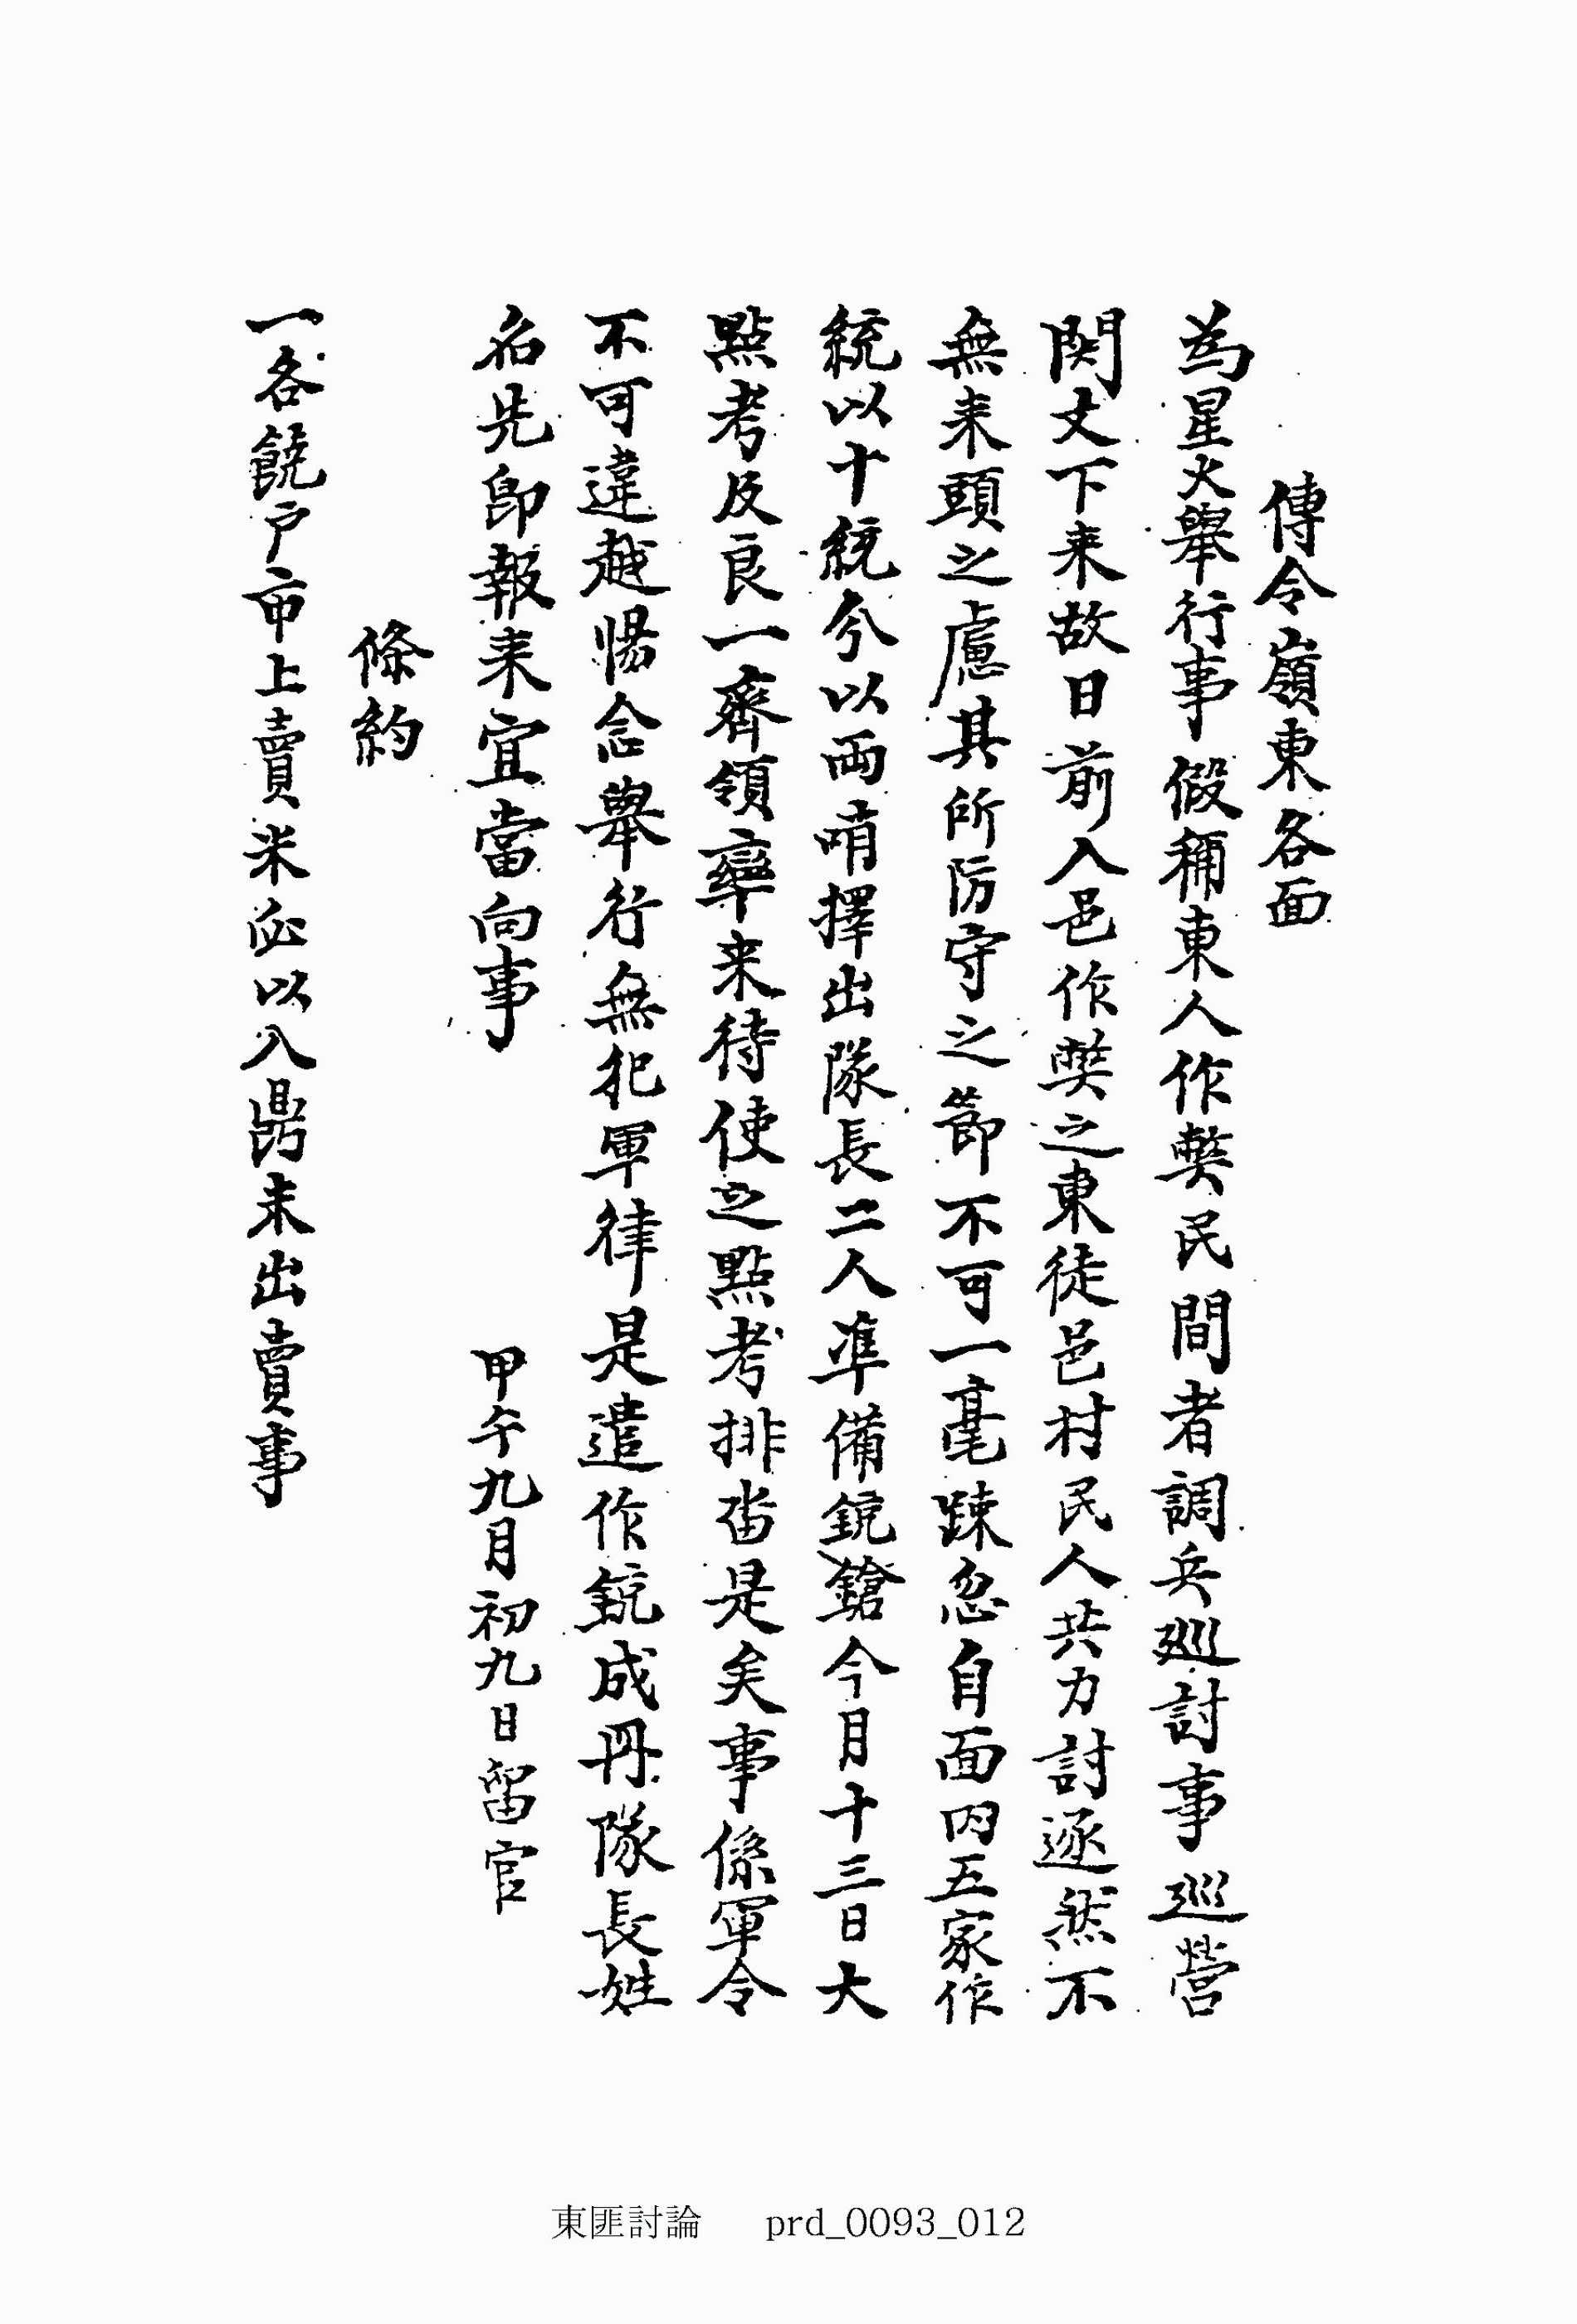 傳令嶺東各面
為星火擧行事假稱東人作弊民間者調兵巡討事巡營
関文下来故日前入邑作弊之東徒邑村民人共力討逐然不
無来頭之慮其所防守之節不可一毫踈忽自面內五家作
統以十統分以兩哨擇出隊長二人準備銃鎗今月十三日大
點考及良一齊領率来待使之點考排畓是矣事係軍令
不可違越惕念擧行無犯軍律是遣作銃成冊隊長姓
名先即報来宜當向事
甲午九月初九日留官
條約
一各饒戶市上賣米必以八鼎末出賣事
東匪討論 prd_0093_012